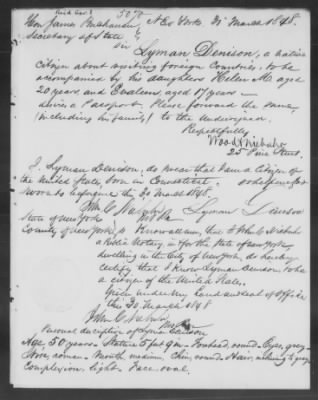 Hon James Buchanan New York 31 March 1848.
Secretary of State
Sir
Lyman Denison, a native
citizen about visiting foreign Countries, to be
accompanied by his daughters Helen M. aged
20 years, and Evalena, aged 17 years —
desire a Passport. Please forward the same,
(including his family) to the undersigned.
Respectfully
25 Pine Street.
I, Lyman Denison, do swear that I am a citizen of
the United States, born in Connecticut. so help me God
Sworn before me this 30 March 1848.
Lyman Denison
State of New York
County of New York Know all men, that I John
a Public Notary, in & for the State of New York,
dwelling in the City of New York, do hereby
certify that I know Lyman Denison, to be
a citizen of the United States.
Given under my hand and seal of Office
this 30 March 1848
Personal description of Lyman Denison
Age, 50 years - Stature 5 feet 9 in - Forehead, round - Eyes, grey -
Nose, roman - Mouth medium. Chin, round - Hair, inclining to grey
Complexion light - Face oval.